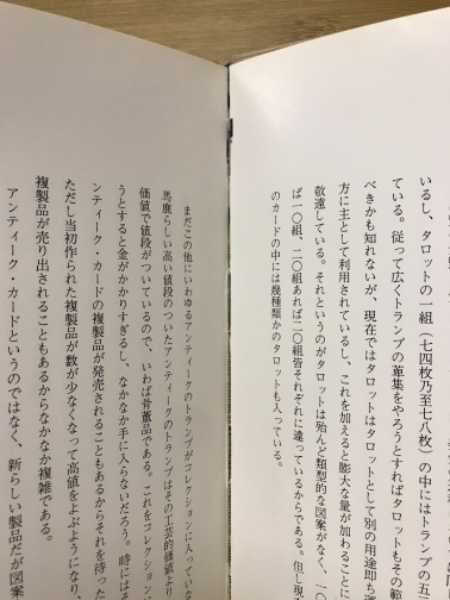 いるし、タロットの一組（七四枚乃至七八枚）の中にはトランプの五
ている。従って広くトランプの蒐集をやろうとすればタロットもその範
べきかも知れないが、現在ではタロットはタロットとして別の用途即ち
方に主として利用されているし、これを加えると膨大な量が加わることに
敬遠している。それというのがタロットは殆んど類型的な図案がなく、一〇
ば一〇組、二〇組あれば二〇組皆それぞれに違っているからである。但し現
のカードの中には幾種類かのタロットも入っている。
まだこの他にいわゆるアンティークのトランプがコレクションに入っていな
馬鹿らしい高い値段のついたアンティークのトランプはその工芸的価値より
価値で値段がついているので、いわば骨董品である。これをコレクション
うとすると金がかかりすぎるし、なかなか手に入らないだろう。時にはそ
ンティーク・カードの複製品が発売されることもあるからそれを待った
ただし当初作られた複製品が数が少なくなって高値をよぶようになり、
複製品が売り出されることもあるからなかなか複雑である。
アンティーク・カードというのではなく、新らしい製品だが図案